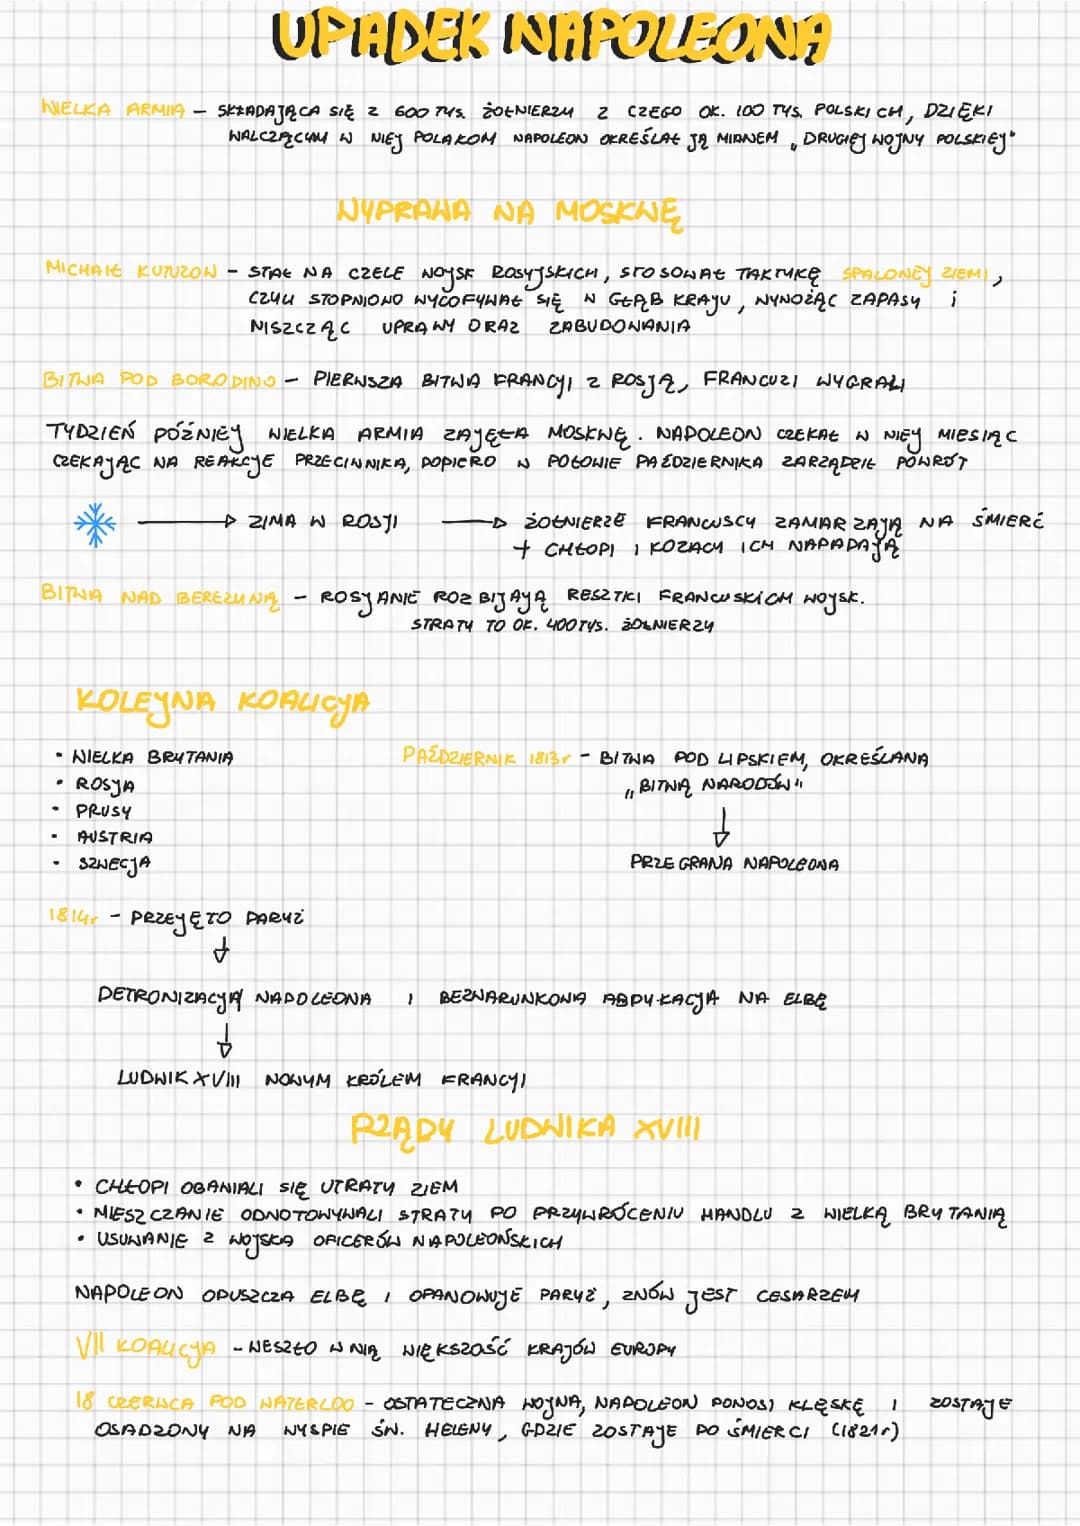 UPADEK NAPOLEONA
WIELKA ARMIA – SKŁADAJĄCA SIĘ Z 600 TYS. ŻOŁNIERZY Z CZEGO OK. 100 TYS. POLSKICH, DZIĘKI
WALCZĄCYM W NIEJ POLAKOM NAPOLEON OKREŚLAŁ JĄ MIANEM „DRUGIEJ WOJNY POLSKIEJ"
WYPRAWA NA MOSKWĘ
MICHAIŁ KUTUZOW – STAŁ NA CZELE WOJSK ROSYJSKICH, STOSOWAŁ TAKTYKĘ SPALONEJ ZIEMI,
CZYLI STOPNIOWO WYCOFYWAŁ SIĘ W GŁĄB KRAJU, WYWOŻĄC ZAPASY i
NISZCZĄC UPRAWY ORAZ ZABUDOWANIA
BITWA POD BORODINO – PIERWSZA BITWA FRANCJI Z ROSJĄ, FRANCUZI WYGRALI
TYDZIEŃ PÓŹNIEJ WIELKA ARMIA ZAJĘŁA MOSKWĘ. NAPOLEON CZEKAŁ W NIEJ MIESIĄC
CZEKAJĄC NA REAKCJE PRZECIWNIKA, DOPIERO W POŁOWIE PAŹDZIERNIKA ZARZĄDZIŁ POWRÓT
→ ZIMA W ROSJI → ŻOŁNIERZE FRANCUSCY ZAMARZAJĄ NA ŚMIERĆ
+ CHŁOPI I KOZACY ICH NAPADAJĄ
BITWA NAD BEREZYNĄ – ROSJANIE ROZBIJAJĄ RESZTKI FRANCUSKICH WOJSK.
STRATY TO OK. 400 TYS. ŻOŁNIERZY
KOLEJNA KOALICJA
• WIELKA BRYTANIA
• ROSJA
• PRUSY
• AUSTRIA
• SZWECJA
PAŹDZIERNIK 1813r – BITWA POD LIPSKIEM, OKREŚLANA
„BITWĄ NARODÓW"
↓
PRZEGRANA NAPOLEONA
1814r – PRZEJĘTO PARYŻ
↓
DETRONIZACJA NAPOLEONA I BEZWARUNKOWA ABDYKACJA NA ELBĘ
↓
LUDWIK XVIII NOWYM KRÓLEM FRANCJI
RZĄDY LUDWIKA XVIII
• CHŁOPI OBAWIALI SIĘ UTRATY ZIEM
• MIESZCZANIE ODNOTOWYWALI STRATY PO PRZYWRÓCENIU HANDLU Z WIELKĄ BRYTANIĄ
• USUWANIE Z WOJSKA OFICERÓW NAPOLEOŃSKICH
NAPOLEON OPUSZCZA ELBĘ I OPANOWUJE PARYŻ, ZNÓW JEST CESARZEM
VII KOALICJA – WESZŁO W NIĄ WIĘKSZOŚĆ KRAJÓW EUROPY
18 CZERWCA POD WATERLOO – OSTATECZNA WOJNA, NAPOLEON PONOSI KLĘSKĘ I ZOSTAJE
OSADZONY NA WYSPIE ŚW. HELENY, GDZIE ZOSTAJE DO ŚMIERCI (1821r)